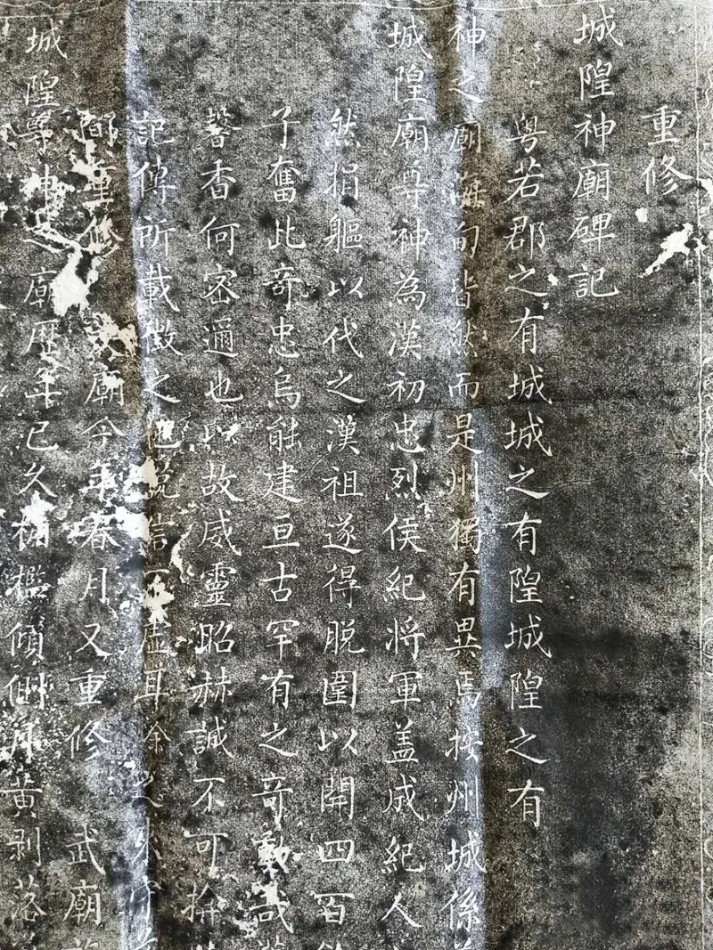 重修
城隍神廟碑記
粵若郡之有城城之有隍城隍之有
神之廟海甸皆然而是州獨有異焉按州城係
城隍廟尊神為漢初忠烈侯紀將軍盖成紀人
然捐軀以代之漢祖遂得脫圍以開四百
子奮此奇忠烏能建亘古罕有之奇勳
馨香何密邇也以故威靈昭赫誠不可揜
記傳所載徵之他說信不虛耳余
間重修 文廟今年春月又重修 武廟
城隍尊神之廟歷年已久 檻傾側丹黃剥落